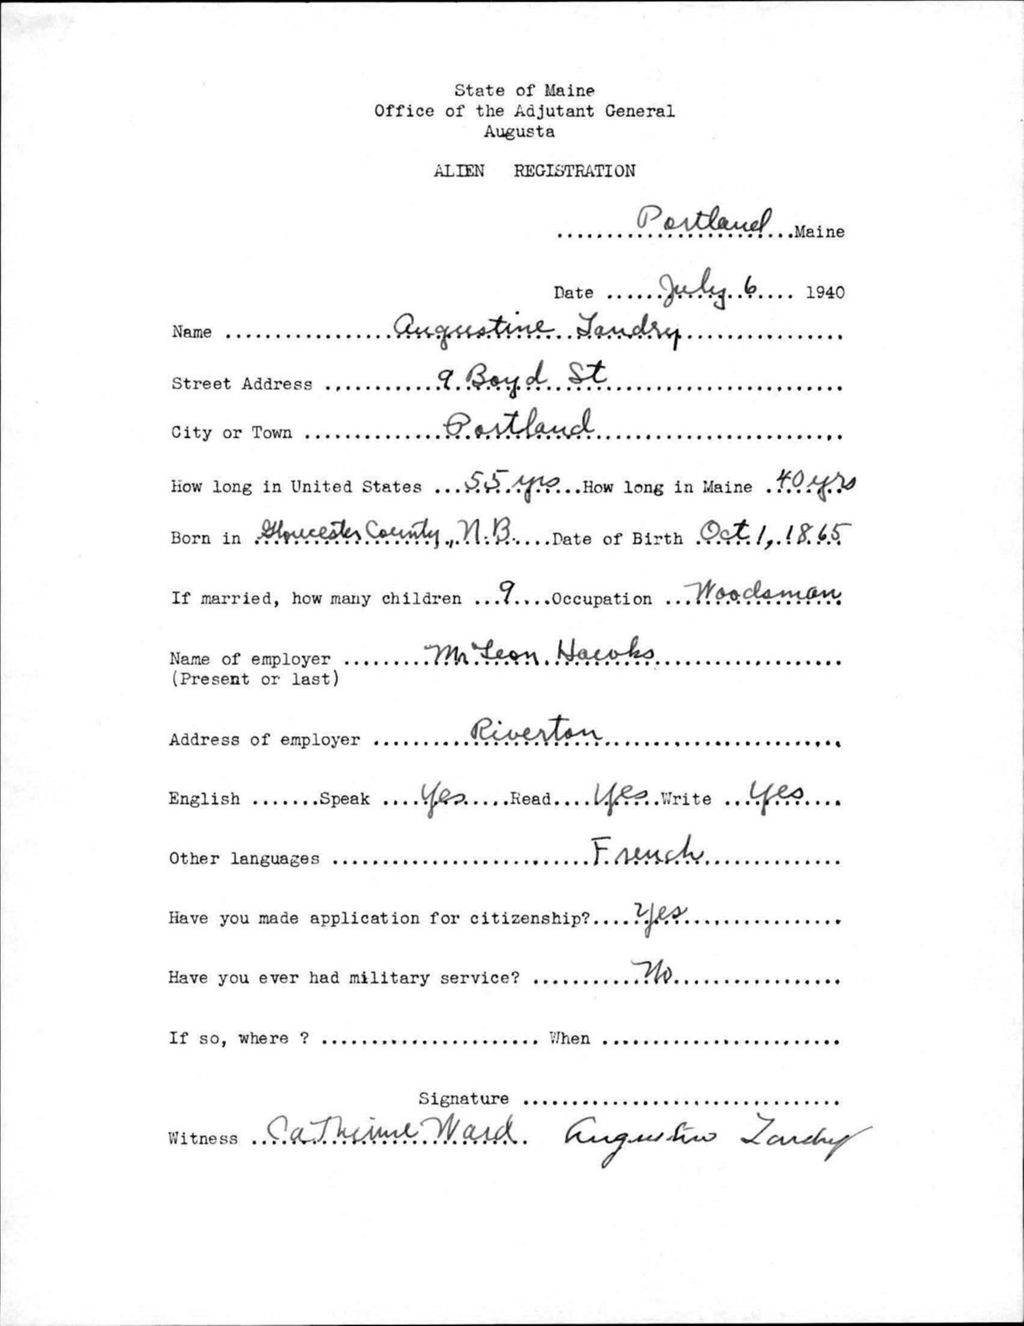 State of Maine
Office of the Adjutant General
Augusta
ALIEN REGISTRATION
........Portland...Maine
Date ......July 6.... 1940
Name ................Augustine Landry................
Street Address ...........9 Boyd St........................
City or Town .............Portland.........................
How long in United States ...55 yrs...How long in Maine .40 yrs
Born in .Gloucester County, N.B.....Date of Birth .Oct. 1, 1865
If married, how many children ...9....Occupation ...Woodsman
Name of employer ........Mr Leon Hawks...................
(Present or last)
Address of employer ..........Riverton........................
English .......Speak ....Yes.....Read....Yes..Write ...Yes....
Other languages ..........................French.............
Have you made application for citizenship?....Yes...............
Have you ever had military service? ...........No.................
If so, where ? ...................... When ........................
Signature ................................
Witness ..Catherine Ward. Augustin Landry